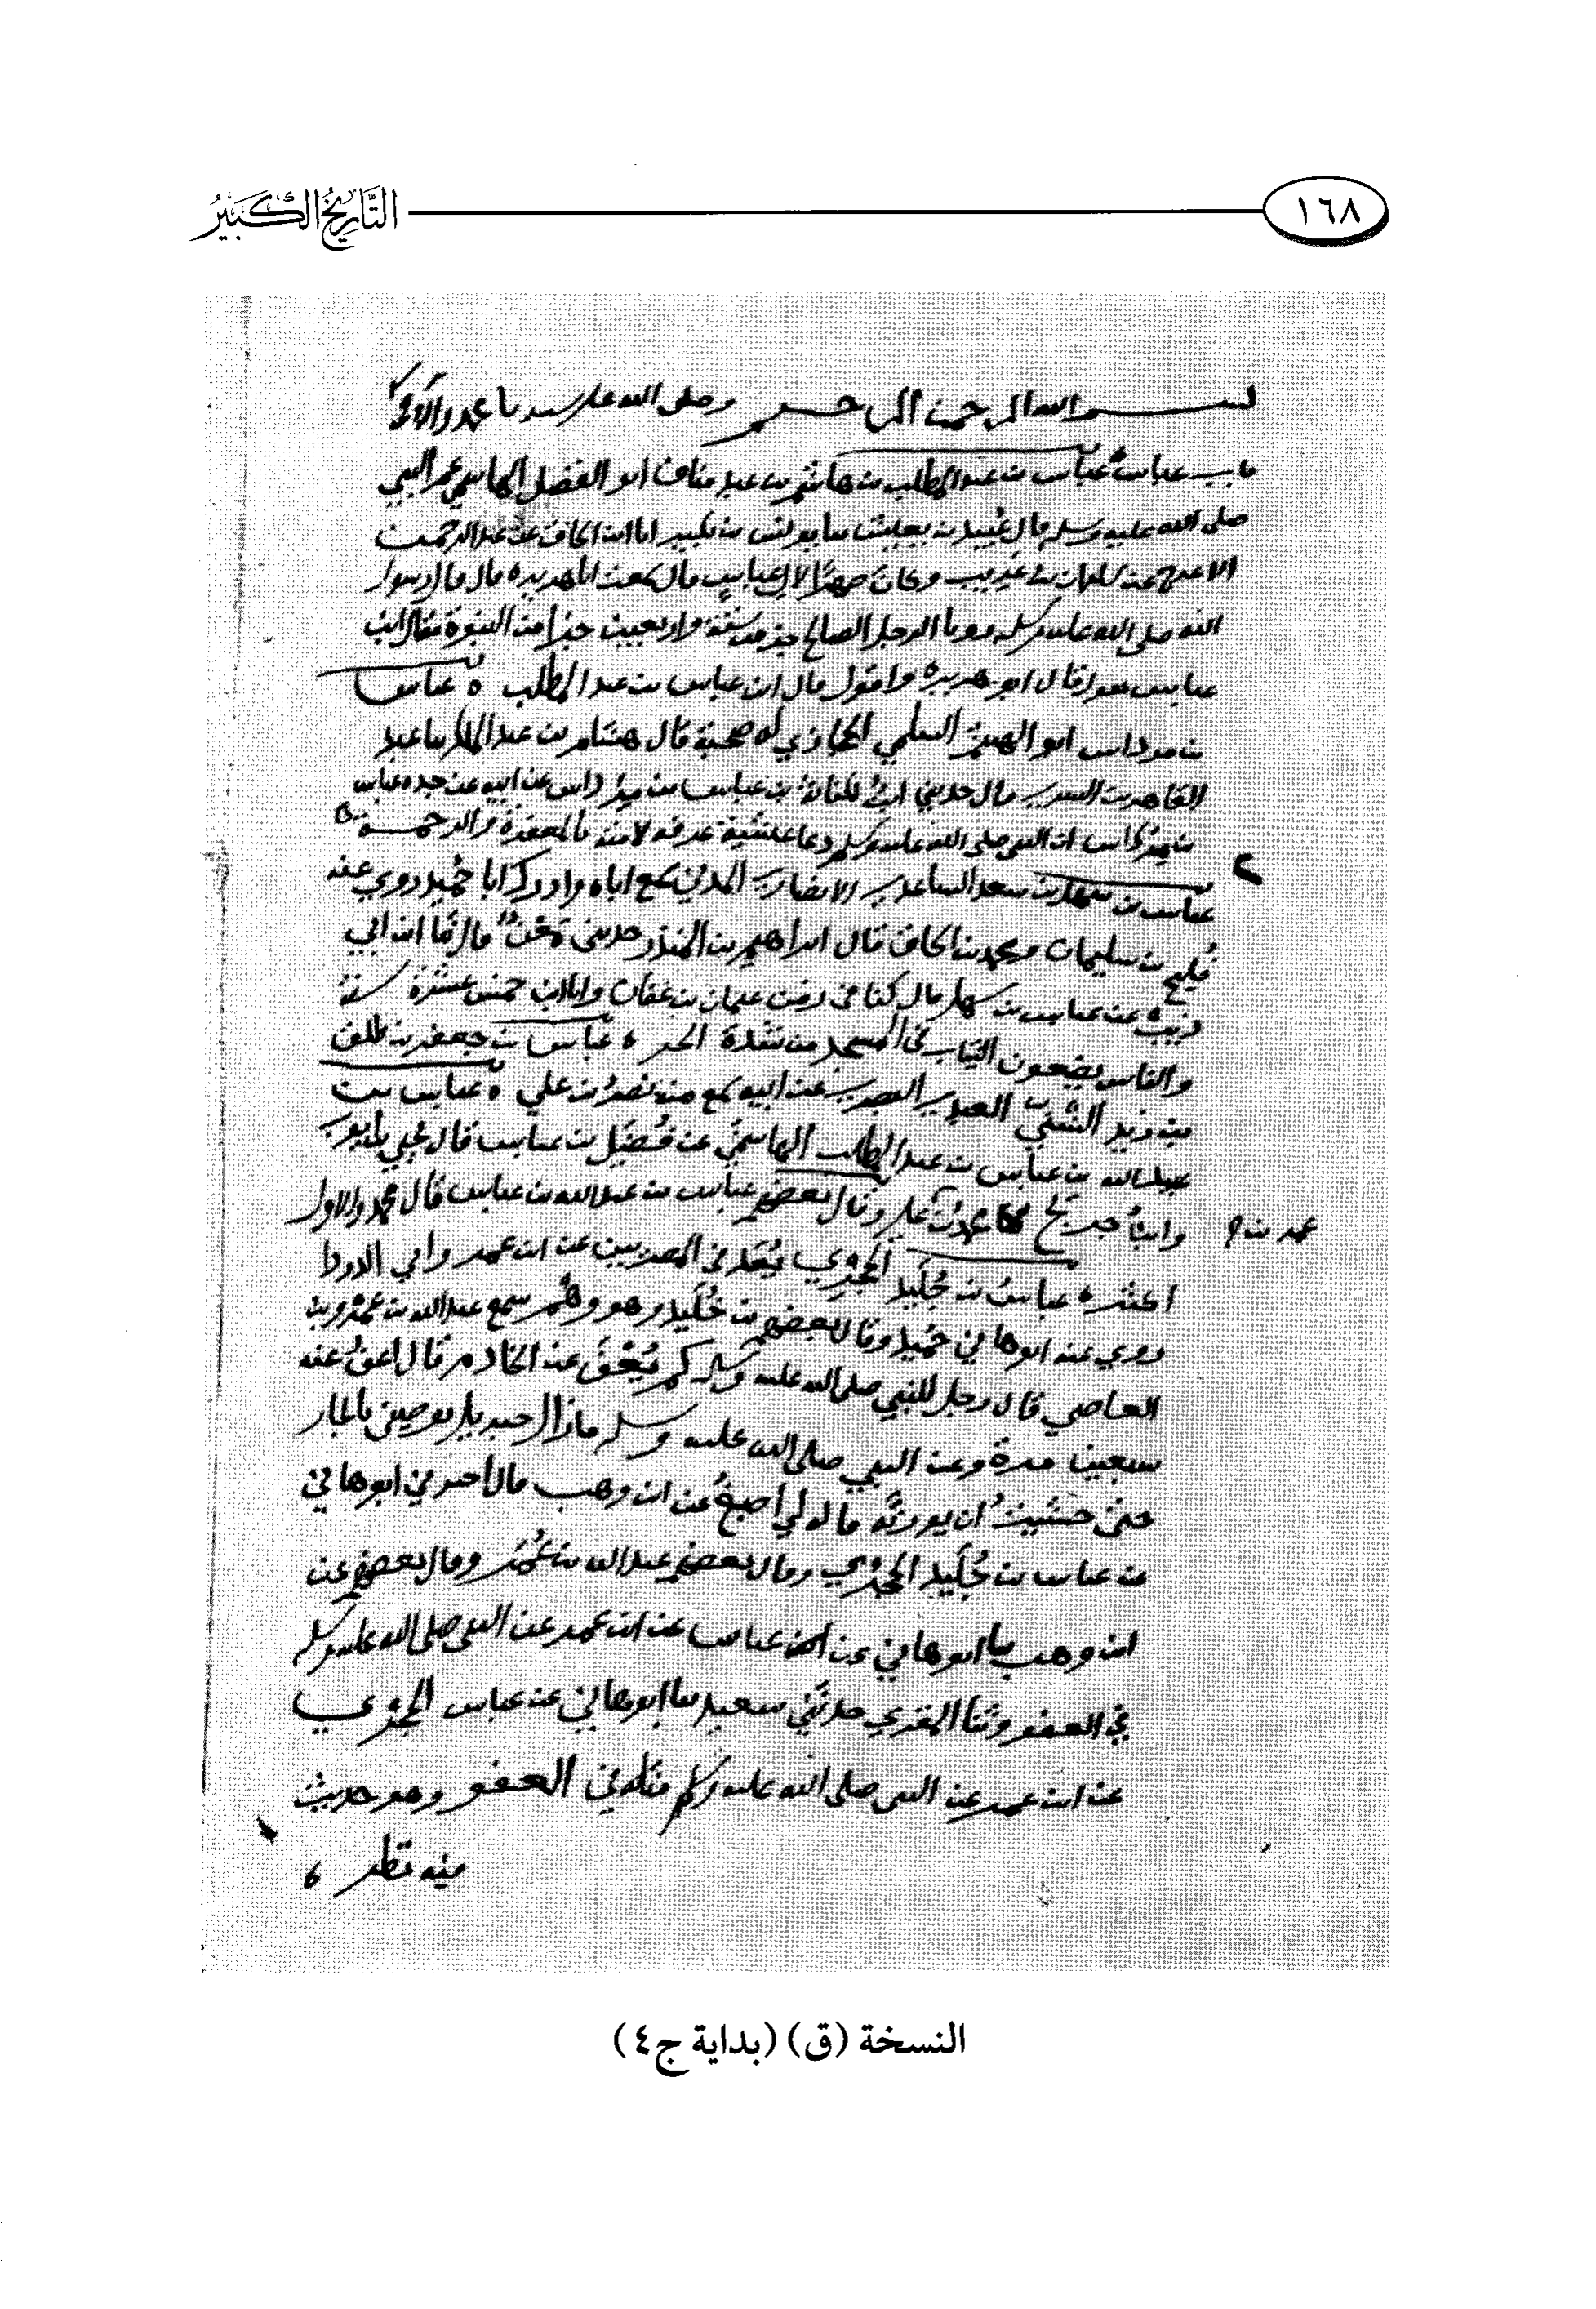 ١٦٨
التَّارِيخُ الكَبِيرُ
بسم الله الرحمن الرحيم وصلى الله على سيدنا محمد وآله
باب عباس عباس بن عبد المطلب بن هاشم بن عبد مناف ابو الفضل الهاشمي عم النبي
صلى الله عليه وسلم قال عبيد بن يعيش نا يونس بن بكير انا ابن اسحاق عن عبد الرحمن
الاعرج عن سليمان بن عريب قال سمعت ابا هريرة قال قال رسول
الله صلى الله عليه وسلم رويا الرجل الصالح جزء من ستة واربعين جزءا من النبوة فقال ابن
عباس قال ابو هريرة واقول قال ابن عباس بن عبد المطلب ه عباس
بن مرداس ابو الهيثم السلمي الحجازي له صحبة قال هشام بن عبد الملك نا عبد
القاهر بن السري قال حدثني ابن لكنانة بن عباس بن مرداس عن ابيه عن جده عباس
بن مرداس ان النبي صلى الله عليه وسلم دعا عشية عرفة لامته بالمغفرة والرحمة
عباس بن سهل بن سعد الساعدي الانصاري المدني سمع اباه وادرك ابا حميد روي عنه
فليح بن سليمان ومحمد بن اسحاق قال ابراهيم بن المنذر حدثني معن قال نا ابن ابي
ذيب عن عباس بن سهل قال كنا في زمن عثمان بن عفان وانا ابن خمس عشرة سنة
والناس يضعون الثياب في المسجد من شدة الحر ه عباس بن جعفر بن طلق
بن زيد الشني العبدي البصري عن ابيه سمع منه نصر بن علي ه عباس بن
عبيد الله بن عباس بن عبد المطلب الهاشمي عن فضيل بن عباس قال يحيى بن ايوب
وابن جريج محمد بن علي وقال بعضهم عباس بن عبد الله بن عباس قال محمد والاول
عمر بن
اكثر ه عباس بن جليد الحجري يعد في المصريين عن ابن عمر وابي الدردا
روي عنه ابو هاني حميد وقال بعضهم بن خليد وهو وهم سمع عبد الله بن عمرو بن
العاصي قال رجل للنبي صلى الله عليه وسلم كم يعفى عن الخادم قال اعف عنه
سبعين مرة وعن النبي صلى الله عليه وسلم ما زال جبريل يوصيني بالجار
حتى خشيت ان يورثه قاله لي اصبغ عن ابن وهب قال اخبرني ابو هاني
عن عباس بن جليد الحجري وقال بعضهم عبد الله بن عمر وقال بعضهم عن
ابن وهب نا ابو هاني عن عباس عن ابن عمر عن النبي صلى الله عليه وسلم
في العفو وثنا المقري حدثني سعيد نا ابو هاني عن عباس الحجري
عن ابن عمر عن النبي صلى الله عليه وسلم مثله في العفو وهو حديث
فيه نظر
النسخة (ق) (بداية ج٤)